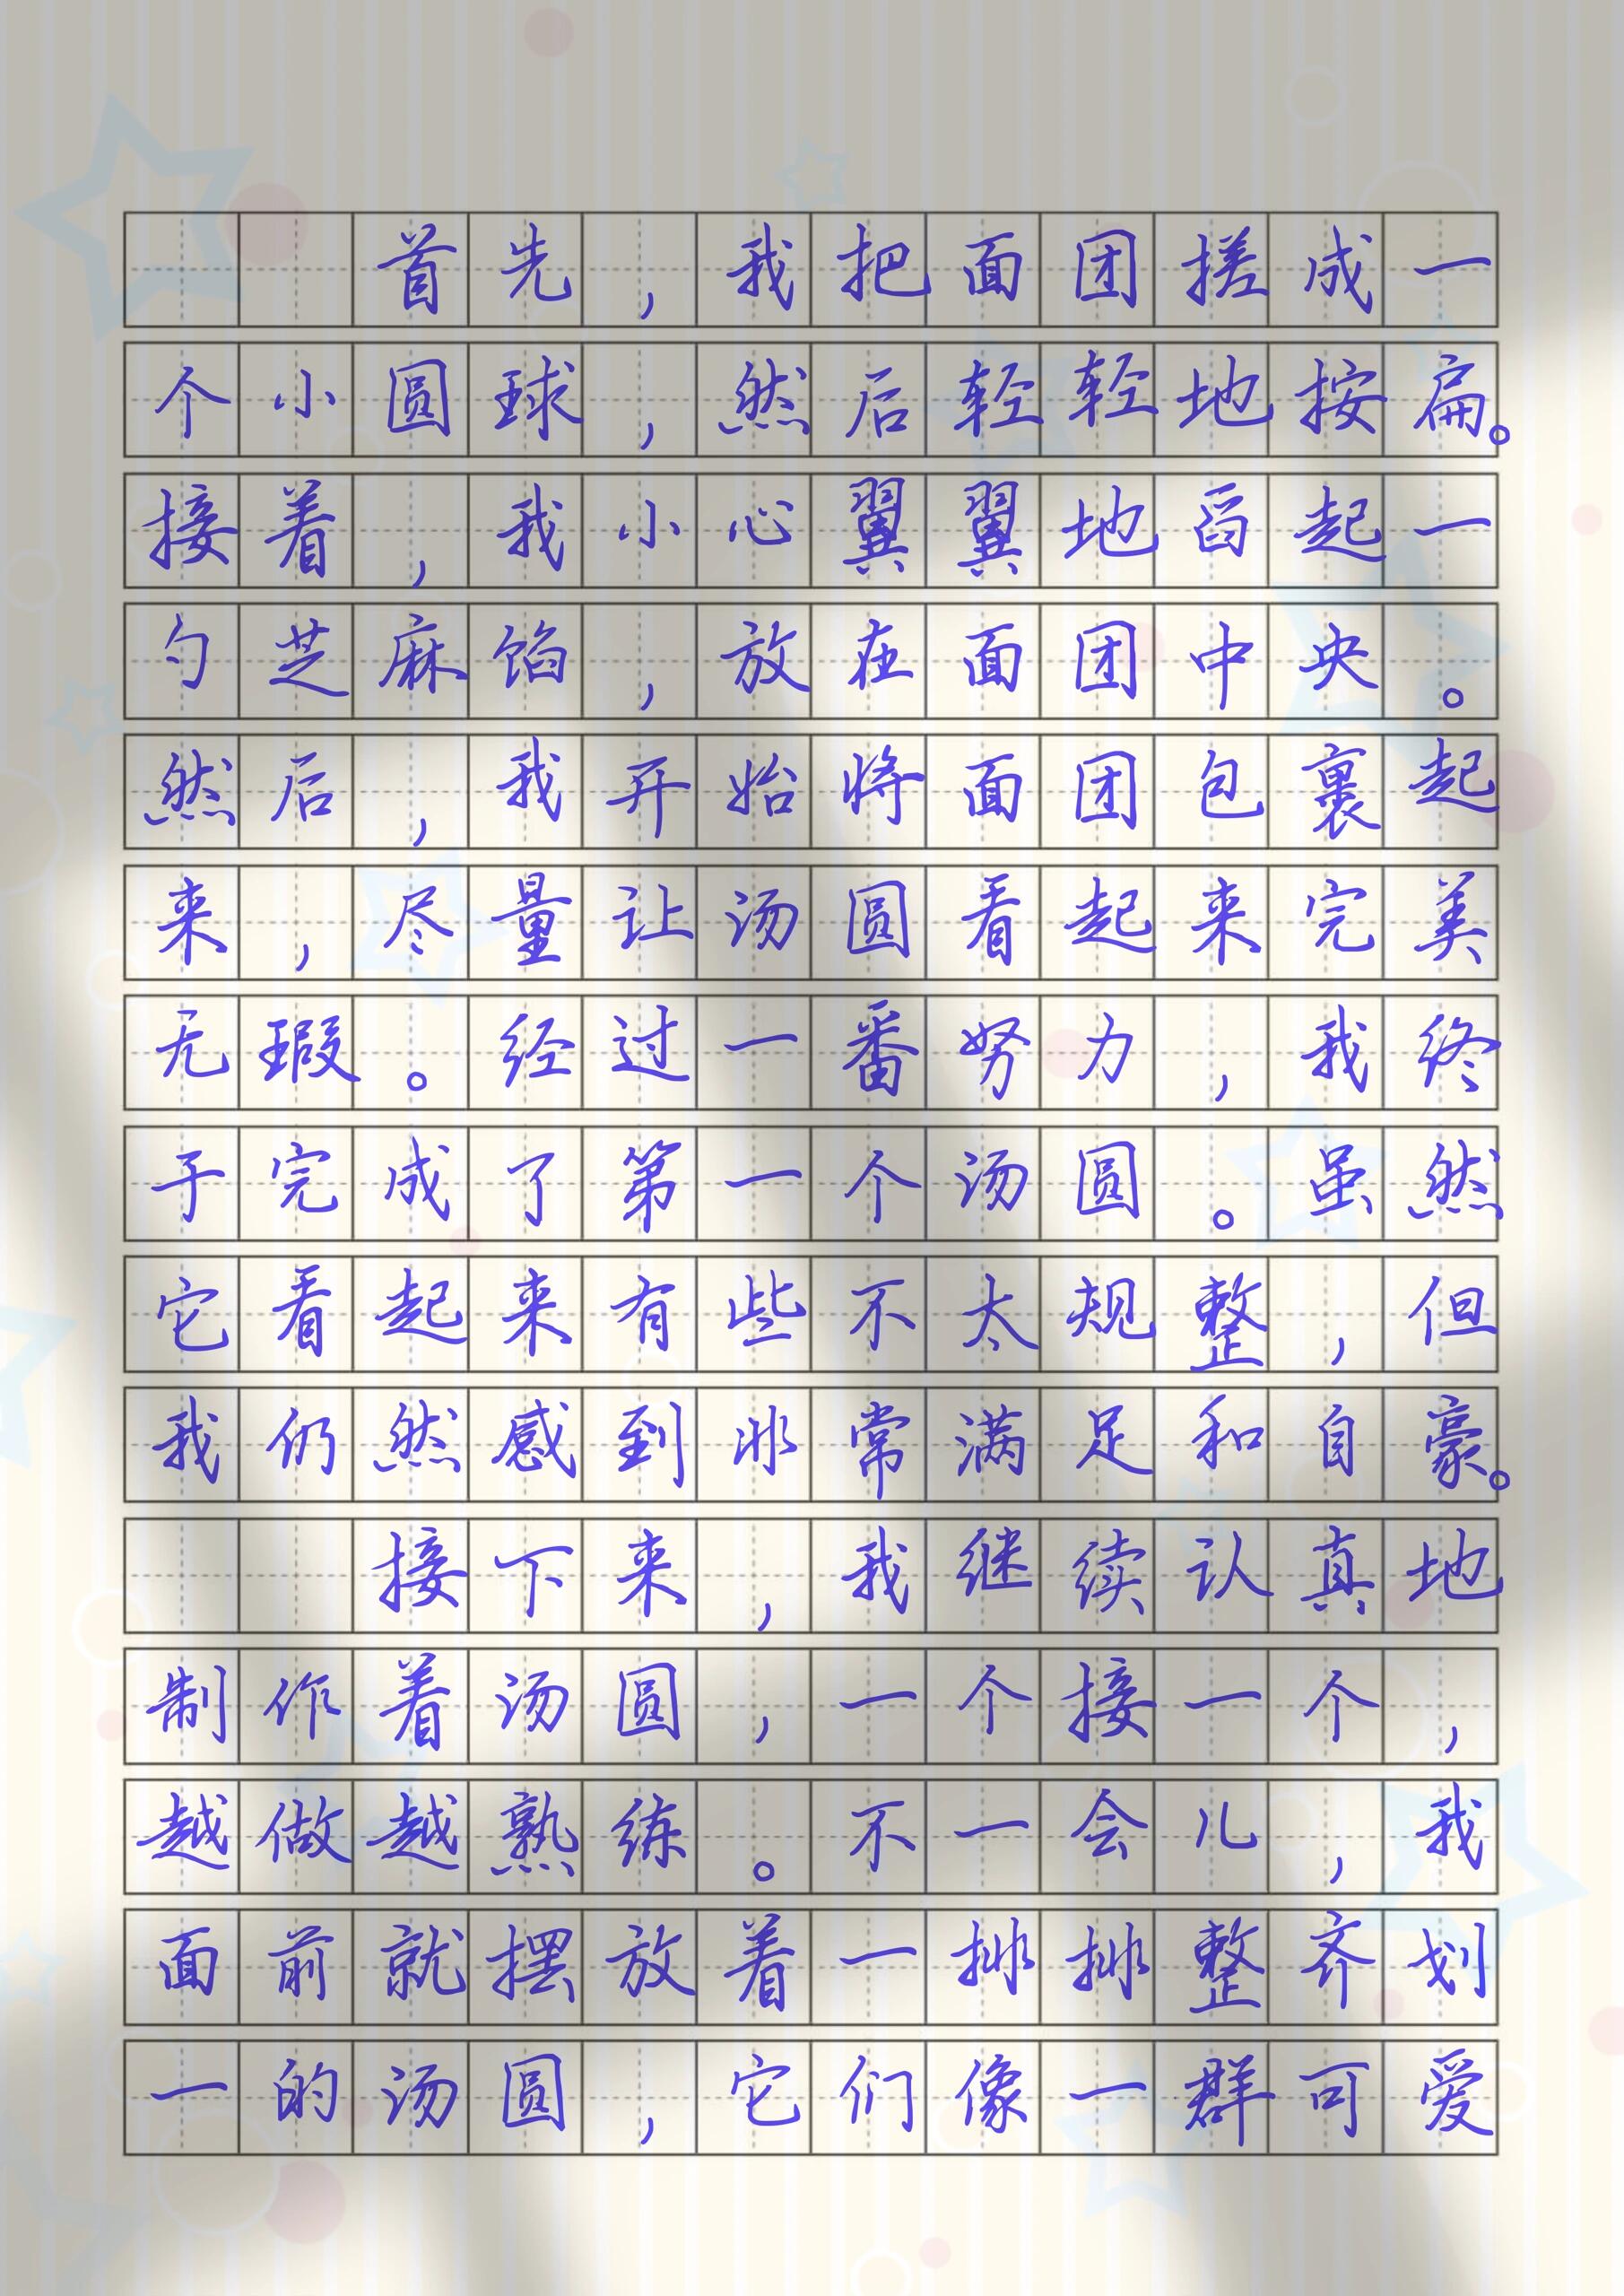 首先，我把面团搓成一
个小圆球，然后轻轻地按扁。
接着，我小心翼翼地舀起一
勺芝麻馅，放在面团中央。
然后，我开始将面团包裹起
来，尽量让汤圆看起来完美
无瑕。经过一番努力，我终
于完成了第一个汤圆。虽然
它看起来有些不太规整，但
我仍然感到非常满足和自豪。
接下来，我继续认真地
制作着汤圆，一个接一个，
越做越熟练。不一会儿，我
面前就摆放着一排排整齐划
一的汤圆，它们像一群可爱